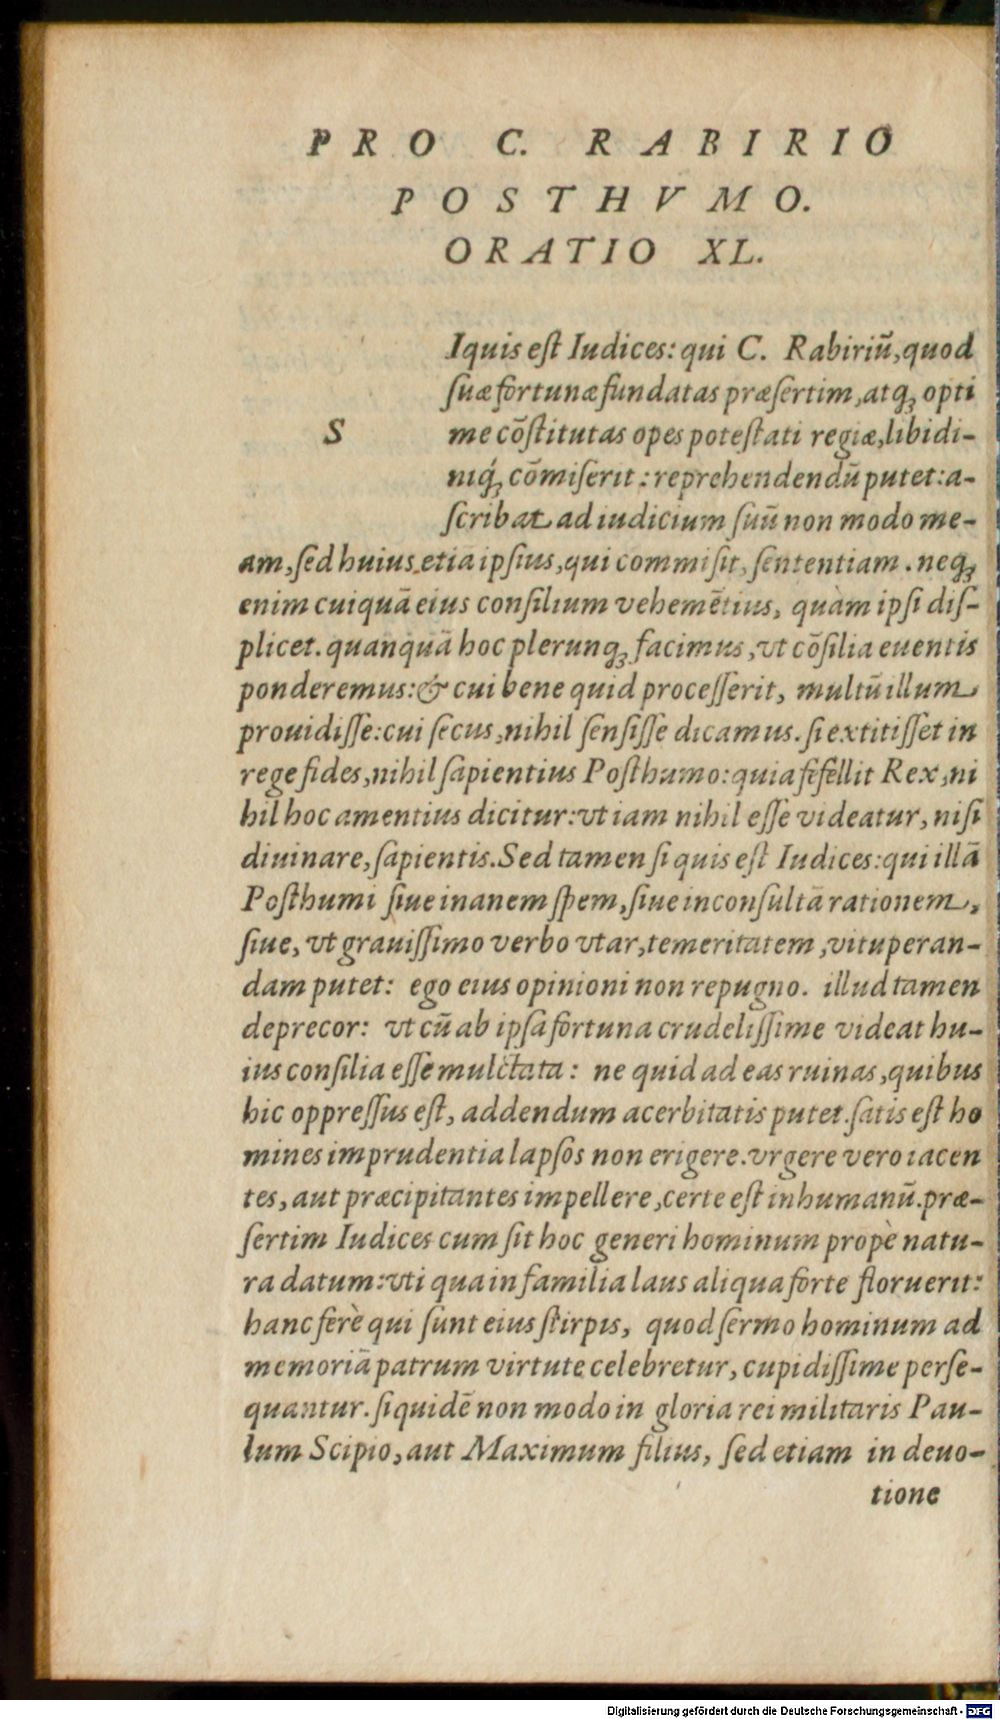 PRO C. RABIRIO
POSTHVMO.
ORATIO XL.
SIquis eſt Iudices: qui C. Rabiriū, quod
ſuæ fortunæ fundatas præſertim, atq; opti
me cōſtitutas opes poteſtati regiæ, libidi-
niq́; cōmiſerit: reprehendendū putet: a-
ſcribat ad iudicium ſuū non modo me-
am, ſed huius etia ipſius, qui commiſit, ſententiam. neq;
enim cuiquā eius conſilium vehemētius, quàm ipſi diſ-
plicet. quanquā hoc plerunq; facimus, vt cōſilia euentis
ponderemus: & cui bene quid proceſſerit, multū illum
prouidiſſe: cui ſecus, nihil ſenſiſſe dicamus. ſi extitiſſet in
rege fides, nihil ſapientius Poſthumo: quia fefellit Rex, ni
hil hoc amentius dicitur: vt iam nihil eſſe videatur, niſi
diuinare, ſapientis. Sed tamen ſi quis eſt Iudices: qui illā
Poſthumi ſiue inanem ſpem, ſiue inconſultā rationem,
ſiue, vt grauiſſimo verbo vtar, temeritatem, vituperan-
dam putet: ego eius opinioni non repugno. illud tamen
deprecor: vt cū ab ipſa fortuna crudeliſſime videat hu-
ius conſilia eſſe mulctata: ne quid ad eas ruinas, quibus
hic oppreſſus eſt, addendum acerbitatis putet. ſatis eſt ho
mines imprudentia lapſos non erigere. vrgere vero iacen
tes, aut præcipitantes impellere, certe eſt inhumanū. præ-
ſertim Iudices cum ſit hoc generi hominum propè natu-
ra datum: vti qua in familia laus aliqua forte floruerit:
hanc ferè qui ſunt eius ſtirpis, quod ſermo hominum ad
memoriā patrum virtute celebretur, cupidiſſime perſe-
quantur. ſiquidē non modo in gloria rei militaris Pau-
lum Scipio, aut Maximum filius, ſed etiam in deuo-
tione
Digitalisierung gefördert durch die Deutsche Forschungsgemeinschaft - DFG